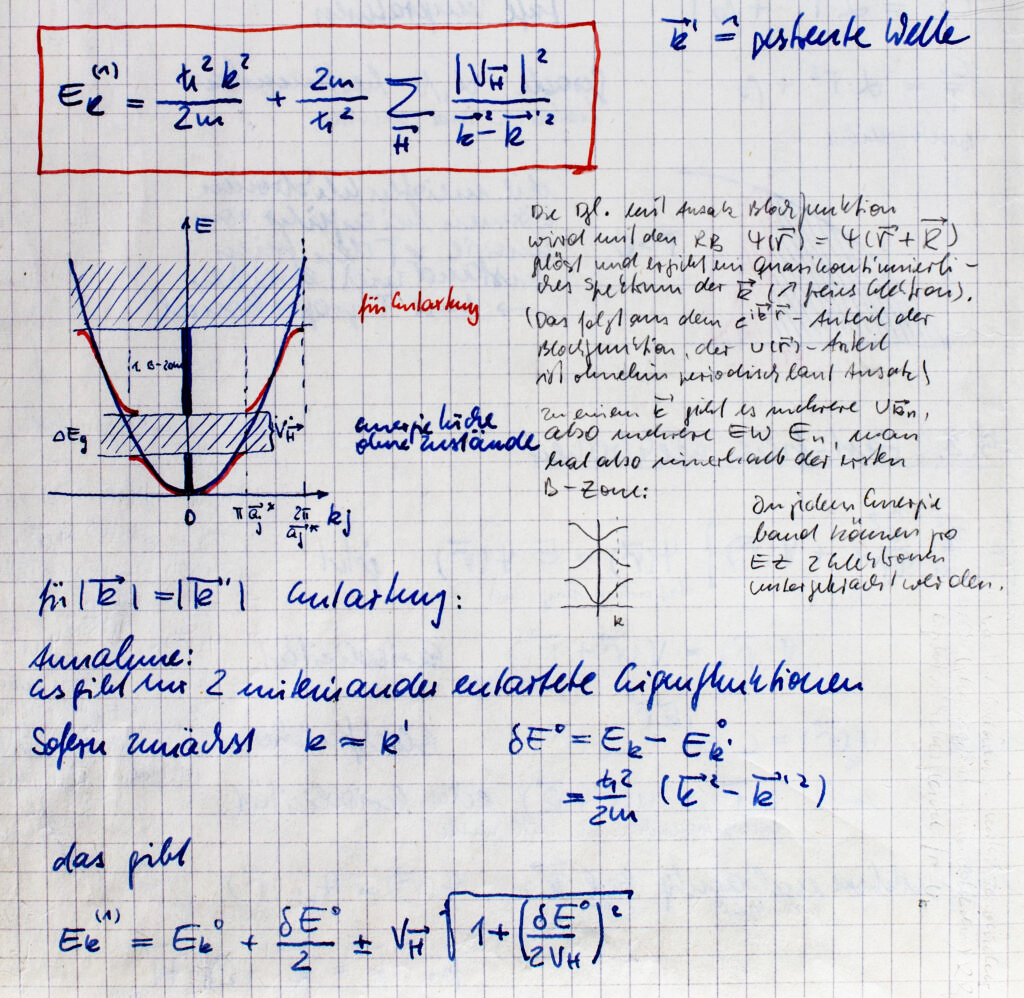 E_k^(1) = ħ²k²/2m + 2m/ħ² Σ_H⃗ |V_H⃗|²/(k⃗² − k⃗'²)
k⃗' ≙ gestreute Welle
E
für Entartung
1. B-Zone
ΔE_g
V_H⃗
Energielücke
ohne Zustände
0
π a⃗_j*
2π a⃗_j*
k_j
Die Dgl. mit Ansatz Blochfunktion
wird mit den RB Ψ(r⃗) = Ψ(r⃗ + R⃗)
gelöst und ergibt ein quasikontinuierli-
ches Spektrum der k⃗ (↗ freies Elektron).
(Das folgt aus dem e^{ik⃗r⃗} - Anteil der
Blochfunktion, der u(r⃗) - Anteil
ist ohnehin periodisch laut Ansatz)
zu einem k⃗ gibt es mehrere u_k⃗n,
also mehrere EW E_n, man
hat also innerhalb der ersten
B-Zone:
k
In jedem Energie
band können pro
EZ 2 Elektronen
untergebracht werden.
für |k⃗| = |k⃗'| Entartung:
Annahme:
es gibt nur 2 miteinander entartete Eigenfunktionen
Sofern zunächst k ≈ k'
δE° = E_k − E_k'°
= ħ²/2m (k⃗² − k⃗'²)
das gibt
E_k^(1) = E_k° + δE°/2 ± V_H⃗ √(1 + (δE°/2V_H)²)